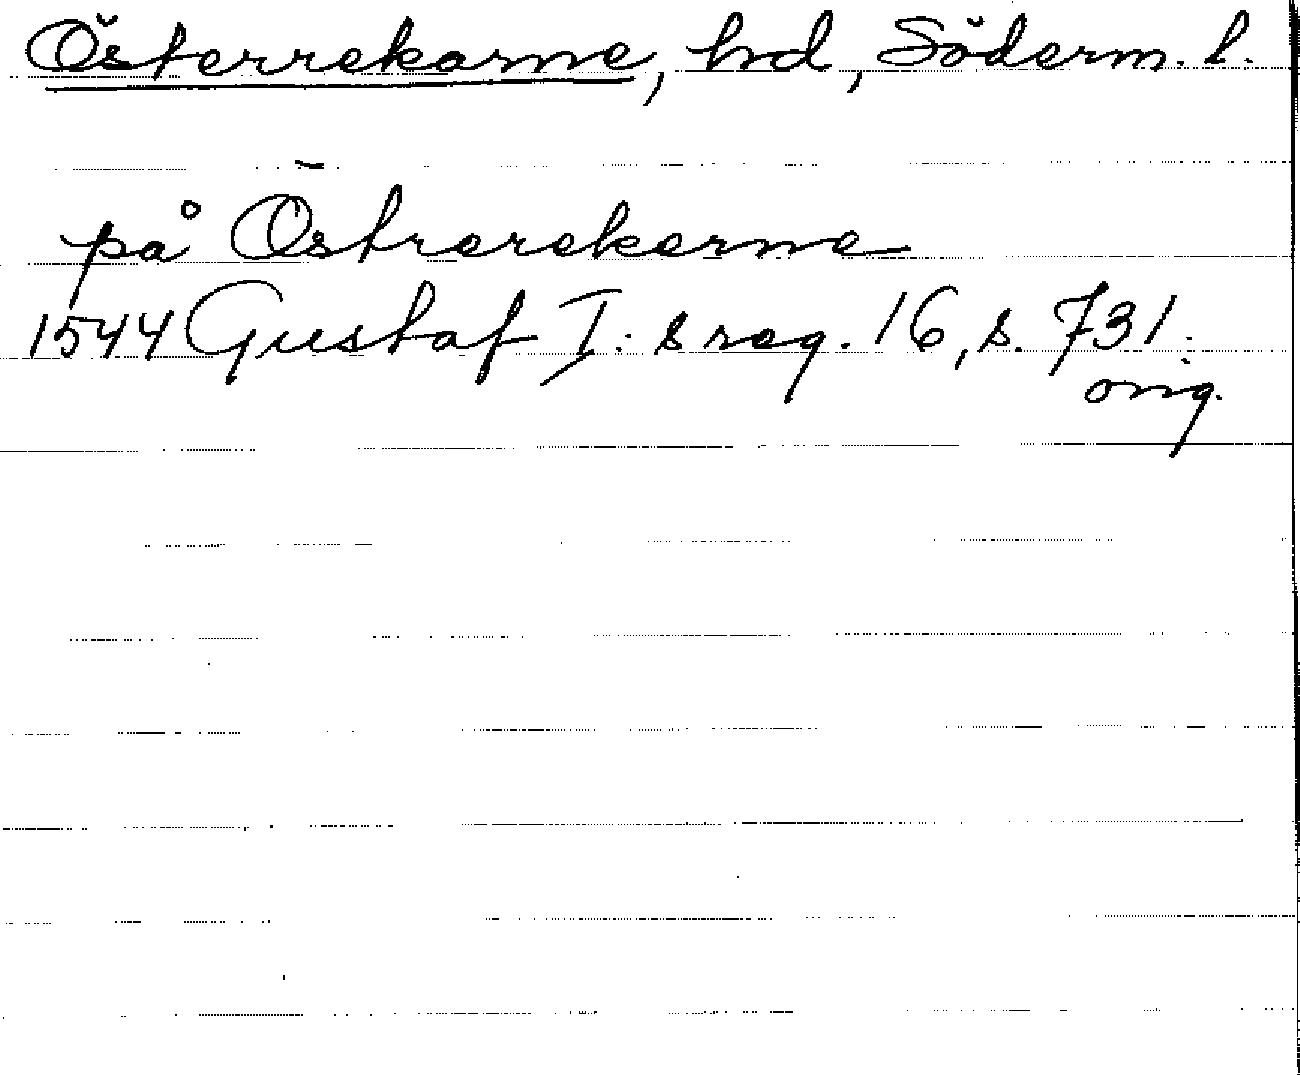 Österrekarne, hd, Söderm. l.
på Östrerekerne
1544 Gustaf I:s reg. 16, s. 731.
orig.